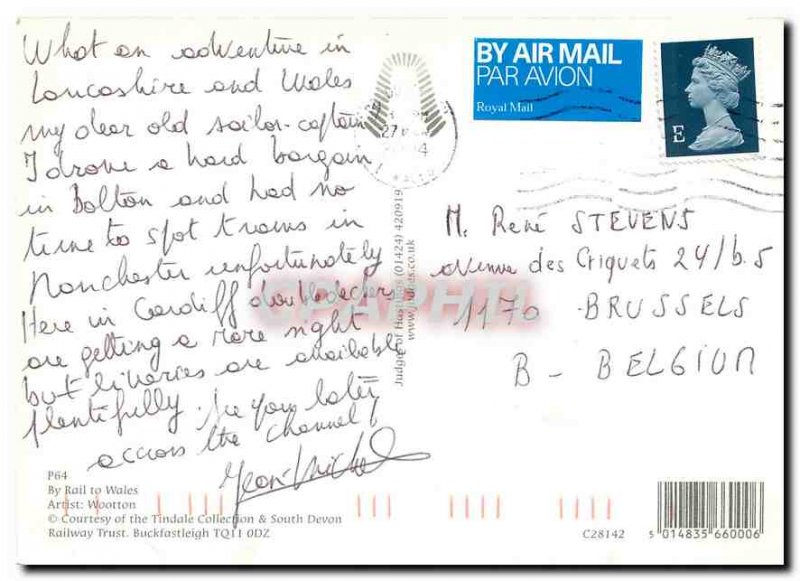 What an adventure in
Lancashire and Wales
my dear old sailor-captain
I drove a hard bargain
in Bolton and had no
time to spot trams in
Manchester unfortunately
Here in Cardiff doubledeckers
are getting a rare sight
but liveries are available
plentifully. See you later
across the Channel!
Jean-Michel
P64
By Rail to Wales
Artist: Wootton
© Courtesy of the Tindale Collection & South Devon
Railway Trust. Buckfastleigh TQ11 0DZ
Judges of Hastings (01424) 420919
www.judges.co.uk
BY AIR MAIL
PAR AVION
Royal Mail
E
27
M. René STEVENS
avenue des Criquets 24/b.5
1170 BRUSSELS
B - BELGIUM
C28142
5 014835 660006
CPAPHIL